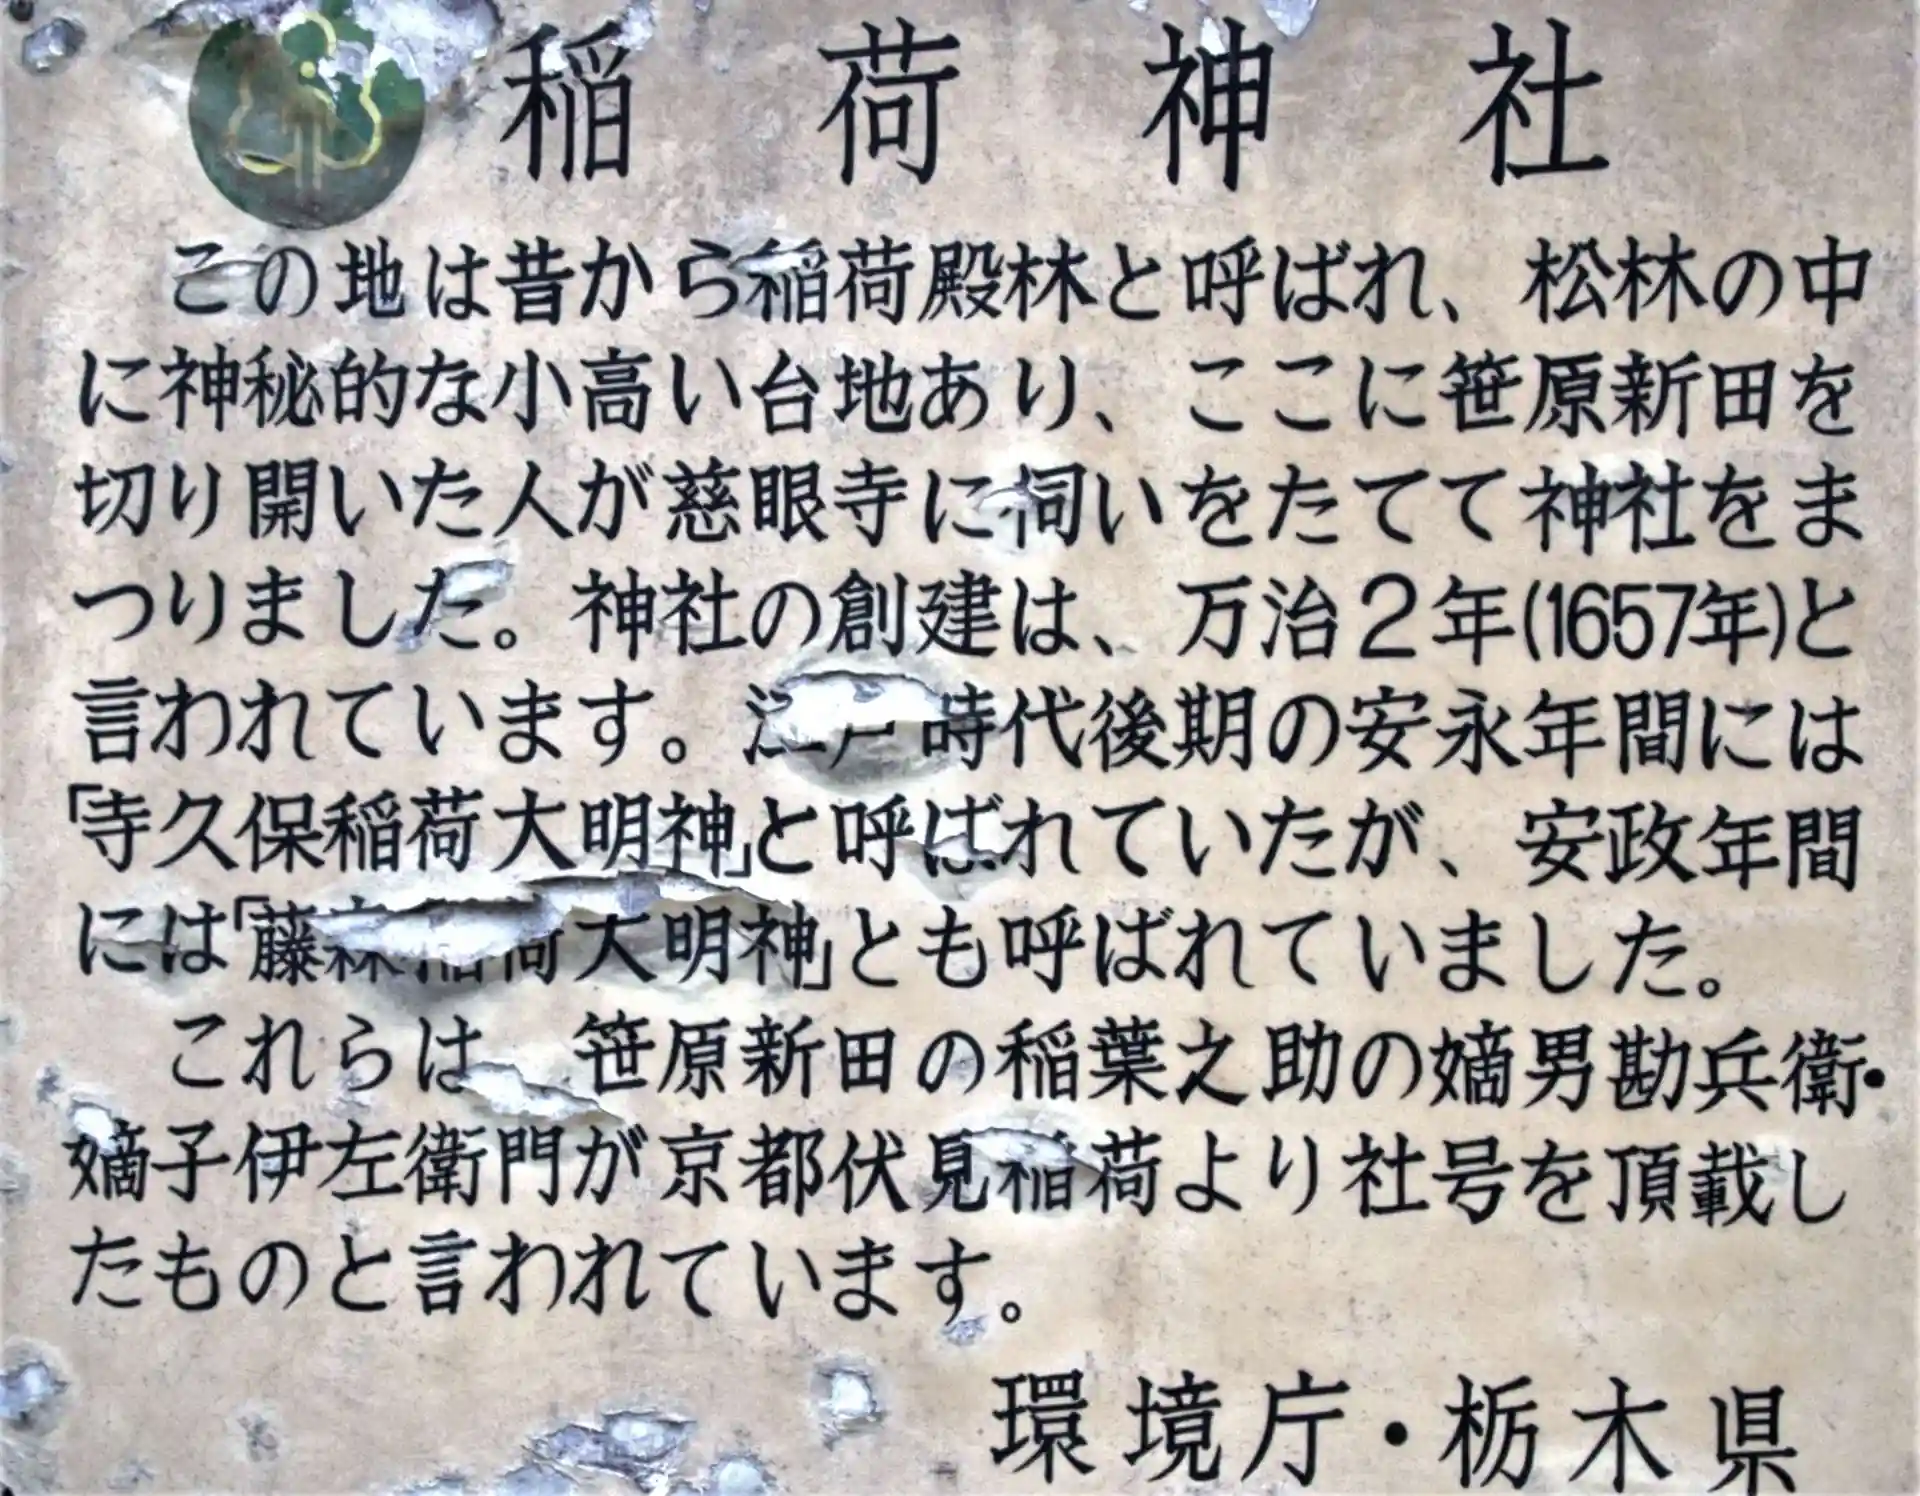 稲荷神社
この地は昔から稲荷殿林と呼ばれ、松林の中
に神秘的な小高い台地あり、ここに笹原新田を
切り開いた人が慈眼寺に伺いをたてて神社をま
つりました。神社の創建は、万治2年(1657年)と
言われています。江戸時代後期の安永年間には
「寺久保稲荷大明神」と呼ばれていたが、安政年間
には「藤森稲荷大明神」とも呼ばれていました。
これらは 笹原新田の稲葉之助の嫡男勘兵衛・
嫡子伊左衛門が京都伏見稲荷より社号を頂載し
たものと言われています。
環境庁・栃木県